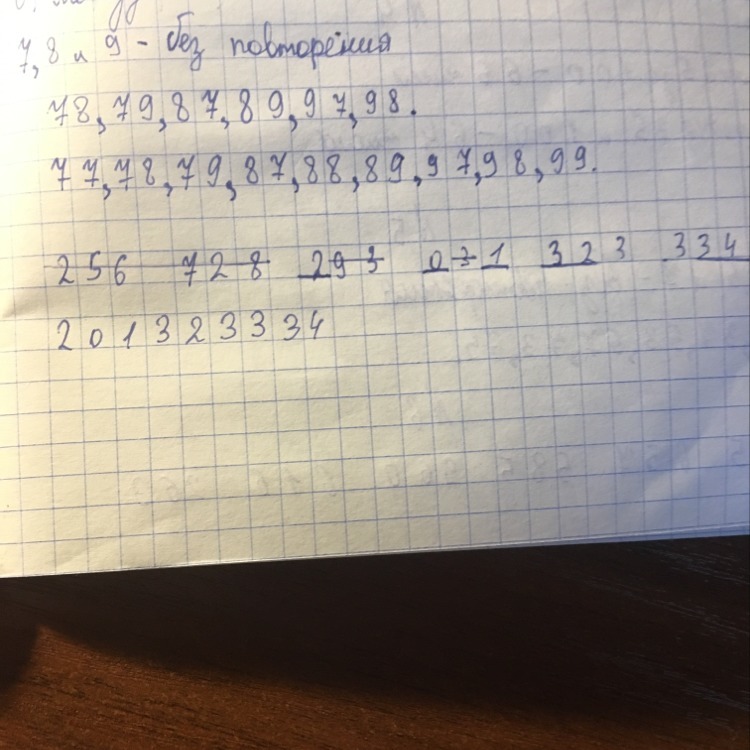 7, 8 и 9 - без повторения
78, 79, 87, 89, 97, 98.
77, 78, 79, 87, 88, 89, 97, 98, 99.
256 728 293 071 323 334
201323334